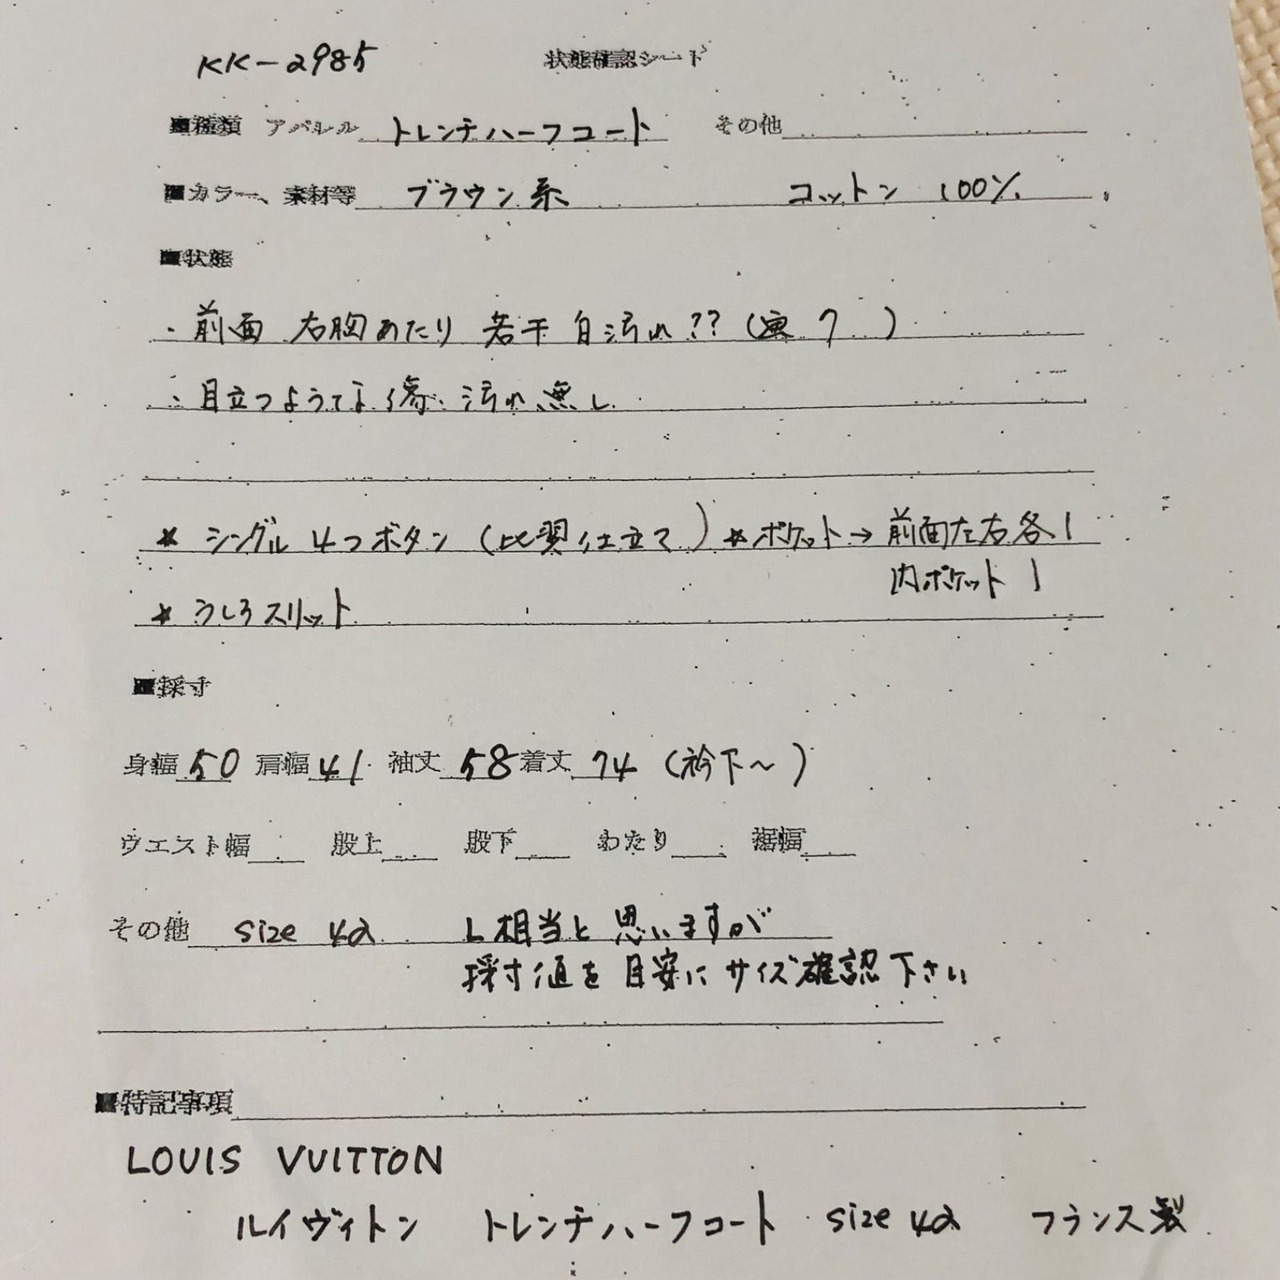 KK-2985 状態確認シート
■種類 アパレル トレンチハーフコート その他
■カラー、素材等 ブラウン系 コットン 100%
■状態
・前面 右胸あたり 若干 白汚れ??(画 7 )
・目立つような傷、汚れ、無し
* シングル 4つボタン (比翼仕立て) *ポケット→前面左右各1
内ポケット 1
* うしろスリット
■採寸
身幅 50 肩幅 41 袖丈 58 着丈 74 (衿下~)
ウエスト幅 股上 股下 わたり 裾幅
その他 size 42 L相当と思いますが
採寸値を目安にサイズ確認下さい
■特記事項
LOUIS VUITTON
ルイヴィトン トレンチハーフコート size 42 フランス製